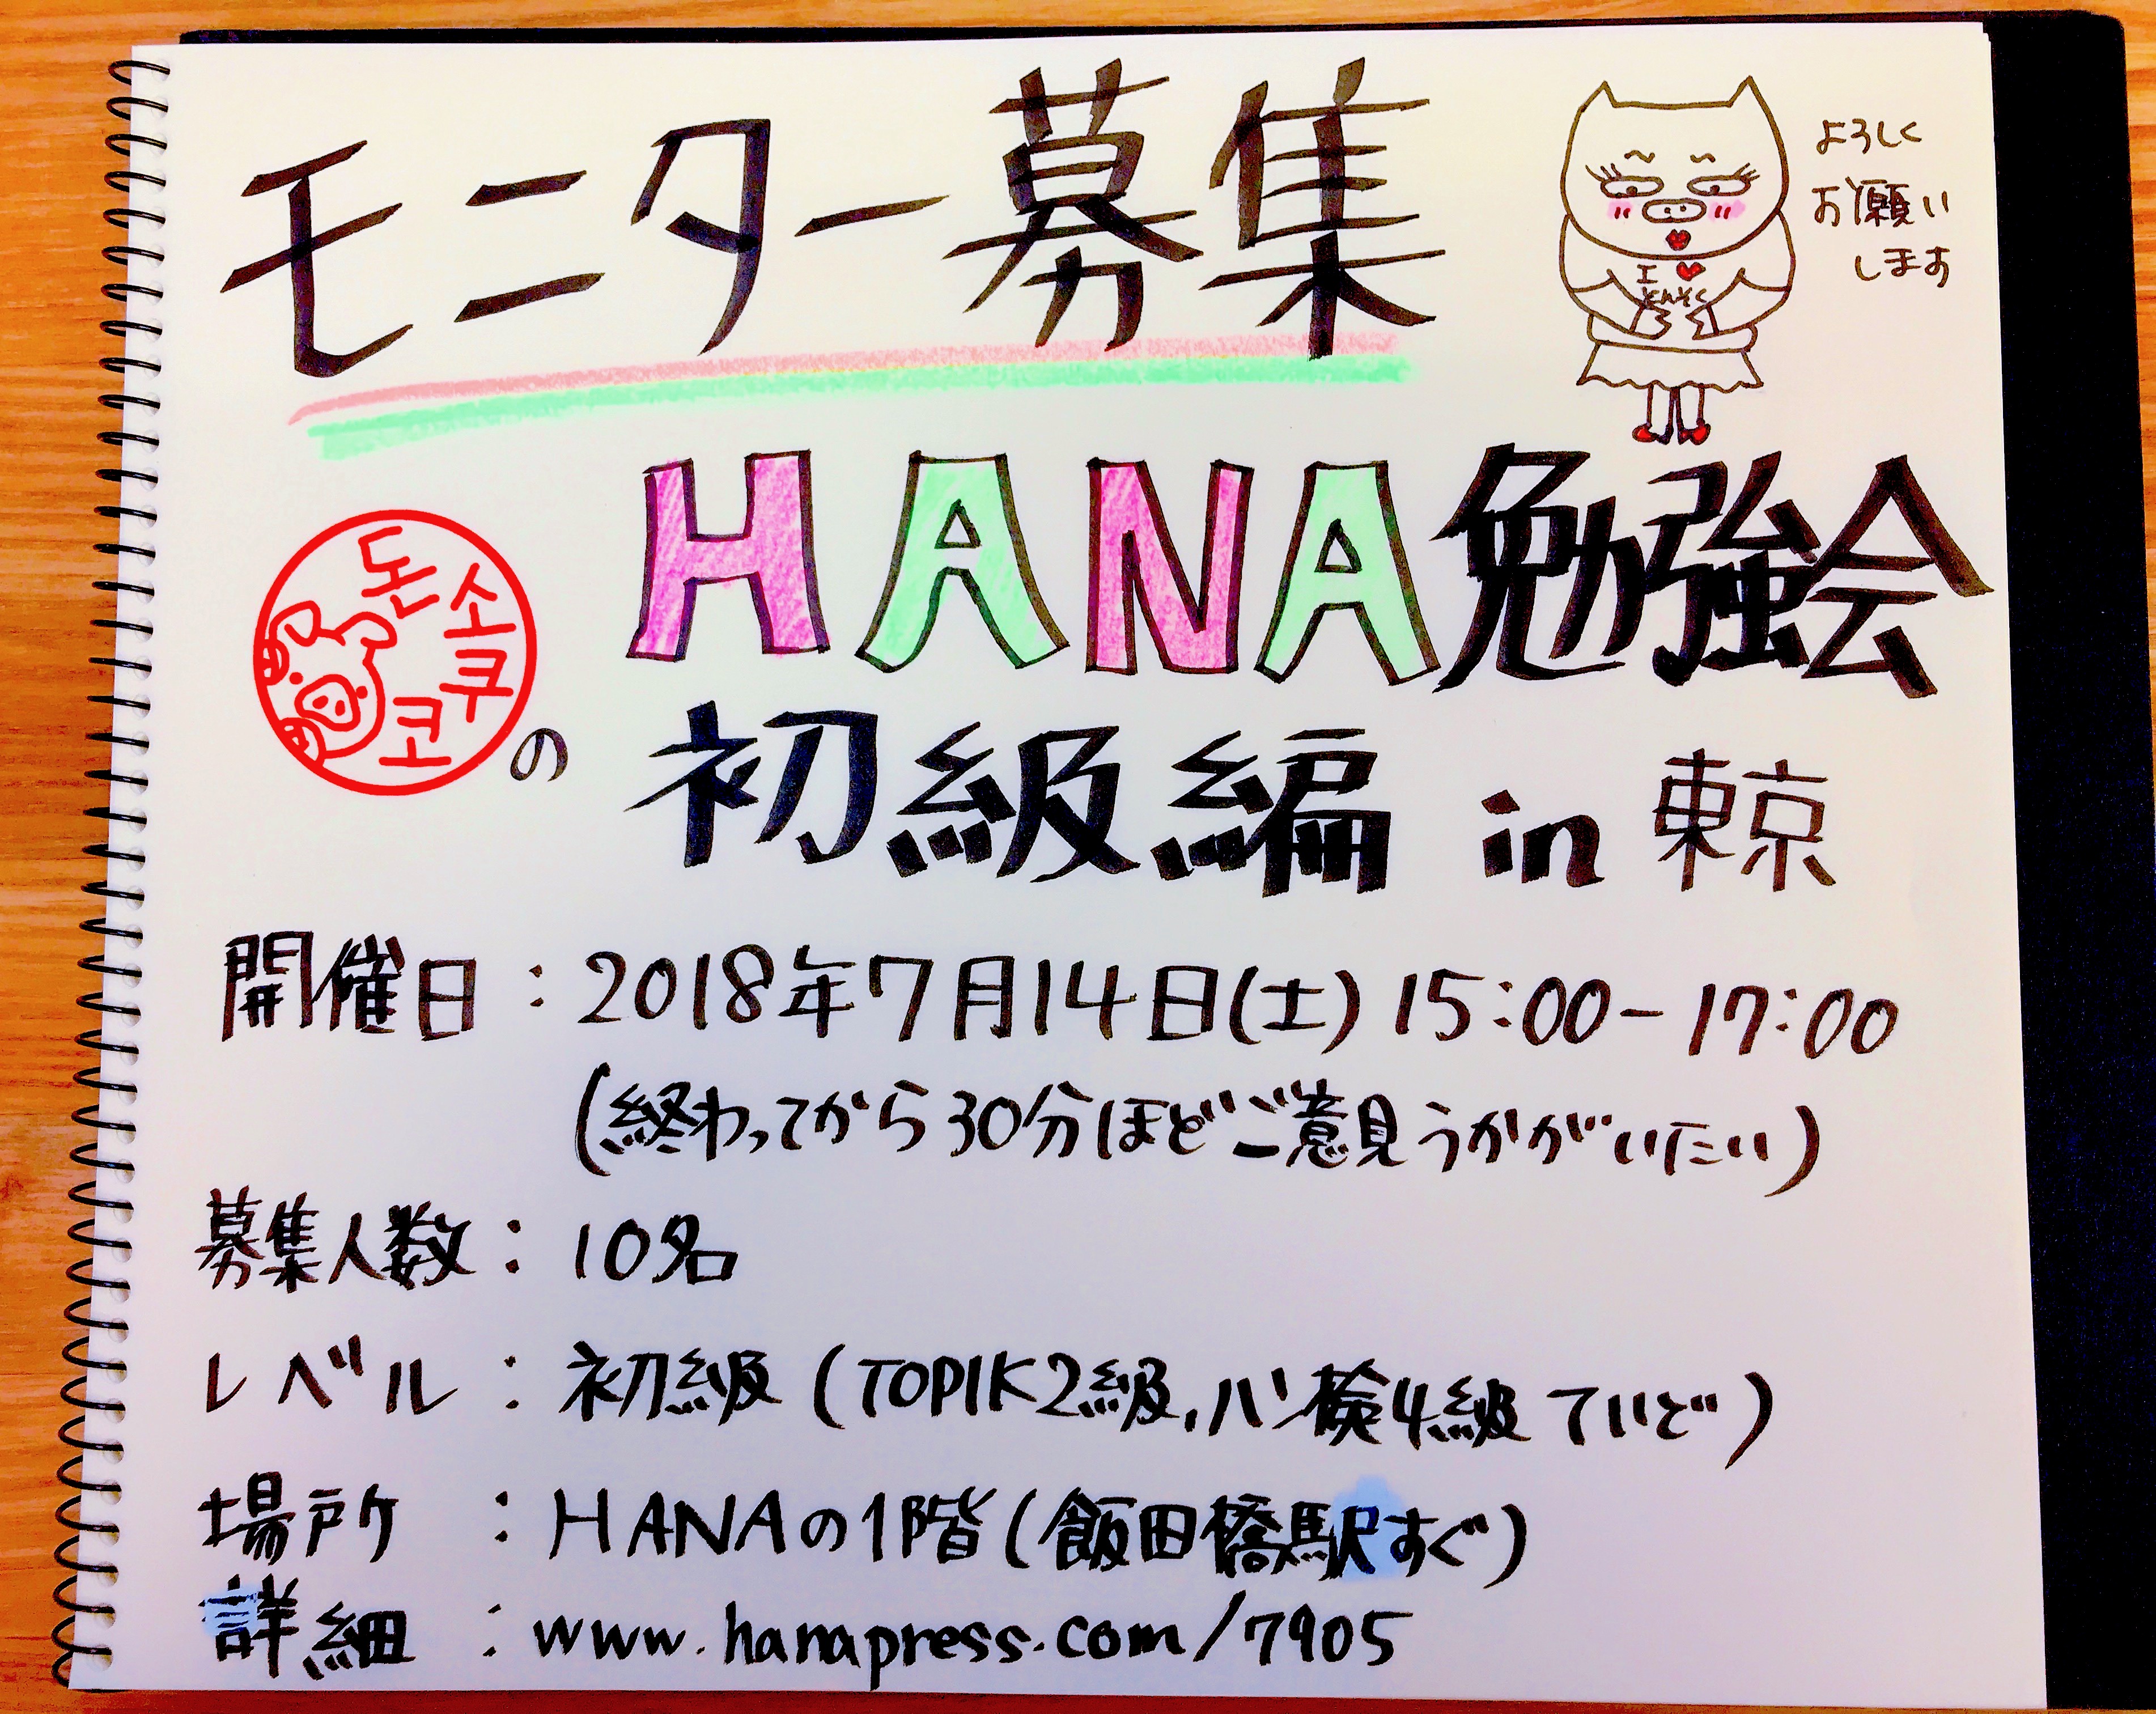 モニター募集
よろしく
お願い
します
I ♥
とんそく
HANA勉強会
돈소쿠코
の
初級編 in 東京
開催日：2018年7月14日(土) 15:00-17:00
(終わってから30分ほどご意見うかがいたい)
募集人数：10名
レベル：初級(TOPIK2級,ハン検4級ていど)
場所：HANAの1階(飯田橋駅すぐ)
詳細：www.hanapress.com/7905